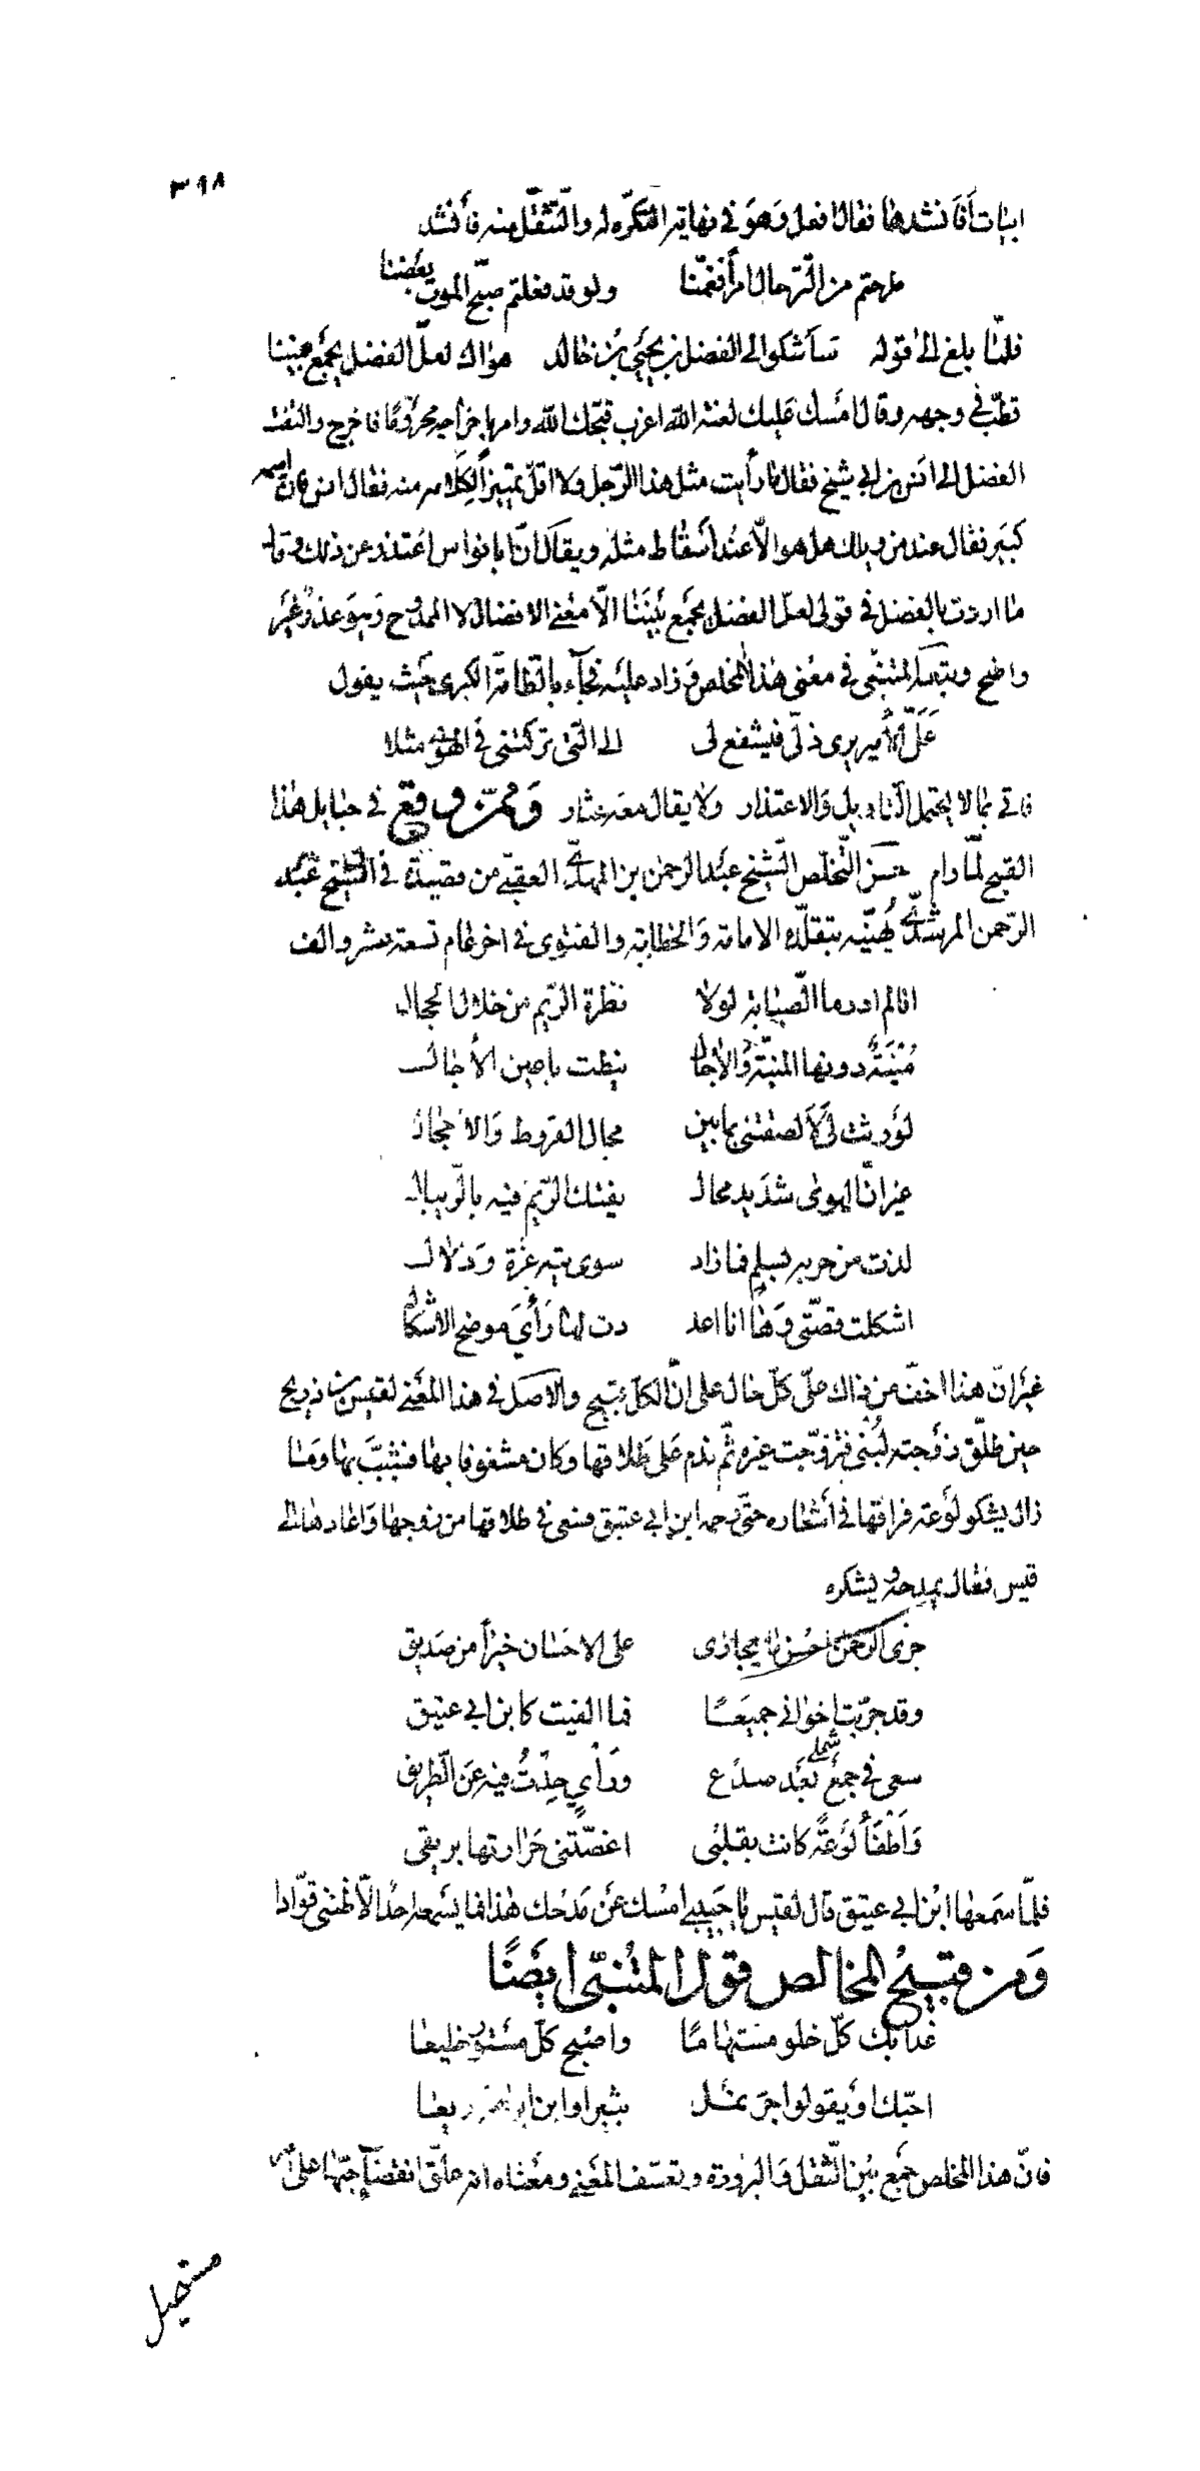 ٣٩٨
ابيات فأنشدها فقال افعل وهو في نهاية التكرّه له والتّثقّل منه فأنشد
طرحتم من التّرحال امرا فغمّنا ولو قد فعلتم صبّح الموت بعضنا
فلمّا بلغ الى قوله سأشكو الى الفضل بن يحيى بن خالد هواك لعلّ الفضل يجمع بيننا
قطّب في وجهه وقال امسك عليك لعنة الله اعزب قبّحك الله وامر باخراجه محروما فاخرج والتفت
الفضل الى انس بن ابي شيخ فقال ما رأيت مثل هذا الرّجل ولا اقلّ تمييزا لكلامه منه فقال انس فان اسمه
كبير فقال عند من ويلك هل هو الّا عند أسقاط مثله ويقال انّ ابا نواس اعتذر عن ذلك وقال
ما اردت بالفضل في قولي لعلّ الفضل يجمع بيننا الّا معنى الافضال لا الممدوح وهو عذر غير
واضح وتبعه المتنبّي في معنى هذا المخلص وزاد عليه فجآء بالطامّة الكبرى حيث يقول
علّ الأمير يرى ذلّي فيشفع لي الى الّتي تركتني في الهوى مثلا
فاتى بما لا يحتمل التاويل والاعتذار ولا يقال معه عثار وممّن وقع في حبايل هذا
القبح لمّا رام حسن التّخلّص الشّيخ عبد الرحمن بن المهلّا العقبي من قصيدة في الشّيخ عبد
الرّحمن المرشدي يهنّيه بتقلّده الامامة والخطابة والفتوى في اخر عام تسعة عشر والف
انا لم ادر ما الصّبابة لولا نظرة الرّيم من خلال الحجال
منية دونها المنيّة والآجال نيطت باعين الآجال
لو رثت لي لألصقتني بما بين مجال القروط والاحجال
غير انّ الهوى شديد محال يفتك الرّيم فيه بالرّيبال
لذت من حربه بسلم فما زاد سوى تيه عزّة ودلال
اشكلت قصّتي وها انا اعد دت لها رأي موضح الاشكال
غير انّ هذا اخفّ من ذاك على كلّ حال على انّ الكلّ قبيح والاصل في هذا المعنى لقيس بن ذريح
حين طلّق زوجته لبنى فتزوّجت غيره ثمّ ندم على طلاقها وكان مشغوفا بها فشبّب بها وما
زال يشكو لوعة فراقها في أشعاره حتّى رحمه ابن ابي عتيق فسعى في طلاقها من زوجها واعادها الى
قيس فقال يمدحه ويشكره
جزى الرحمن احسن ما يجازى على الاحسان خيرا من صديق
وقد جرّبت اخواني جميعا فما الفيت كابن ابي عتيق
سعى في جمع شملي بعد صدع ورأي حدت فيه عن الطّريق
وأطفأ لوعة كانت بقلبي اغصّتني حرارتها بريقي
فلمّا سمعها ابن ابي عتيق قال لقيس يا حبيبي امسك عن مدحك هذا فما يسمعه احد الّا ظنّني قوّادا
ومن قبيح المخالص قول المتنبّي ايضا
غدا بك كلّ خلو مستهاما واصبح كلّ مستور خليعا
احبّك او يقولوا جرّ نمل ثبيرا وابن ابراهيم ريعا
فانّ هذا المخلص جمع بين الثّقل والبرودة وتعسّف المعنى ومعناه انه علّق انقضآء حبّها على
مستحيل